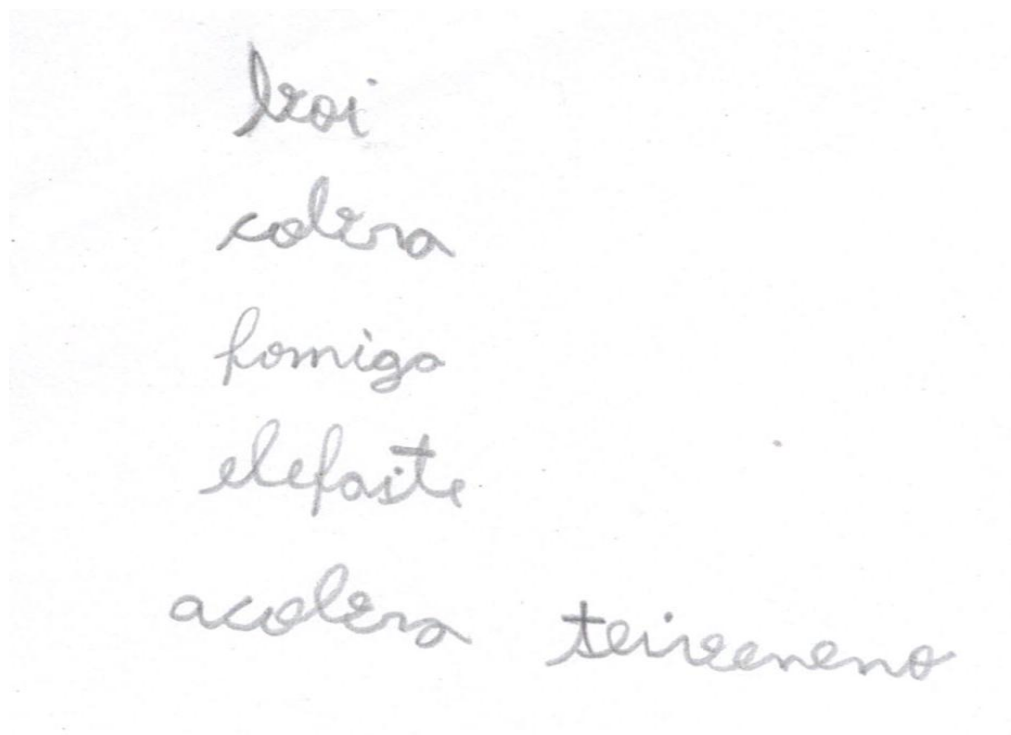 boi
cobra
fomiga
elefaite
acobra teiveneno